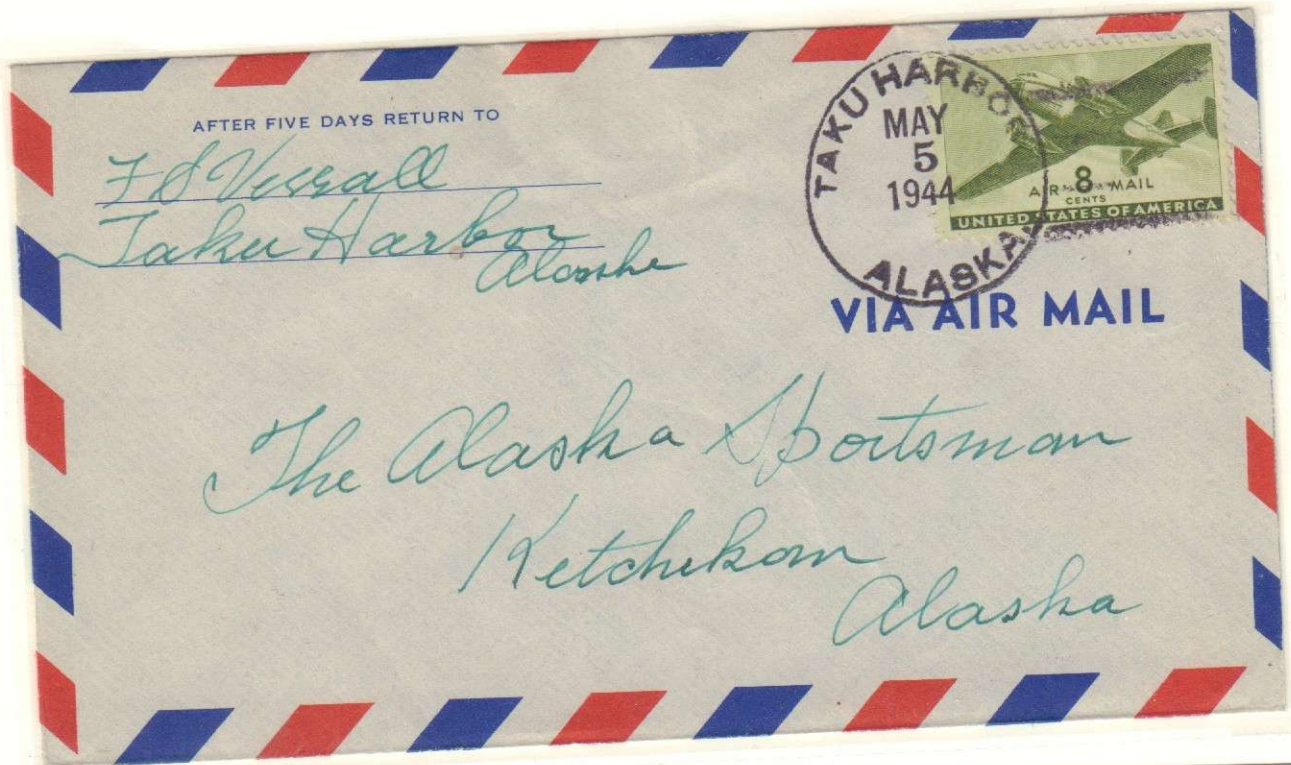 AFTER FIVE DAYS RETURN TO
F S
Taku Harbor
Alaska
TAKU HARBOR
MAY
5
1944
ALASKA
AIR 8 MAIL
CENTS
UNITED STATES OF AMERICA
VIA AIR MAIL
The Alaska Sportsman
Ketchikan
Alaska